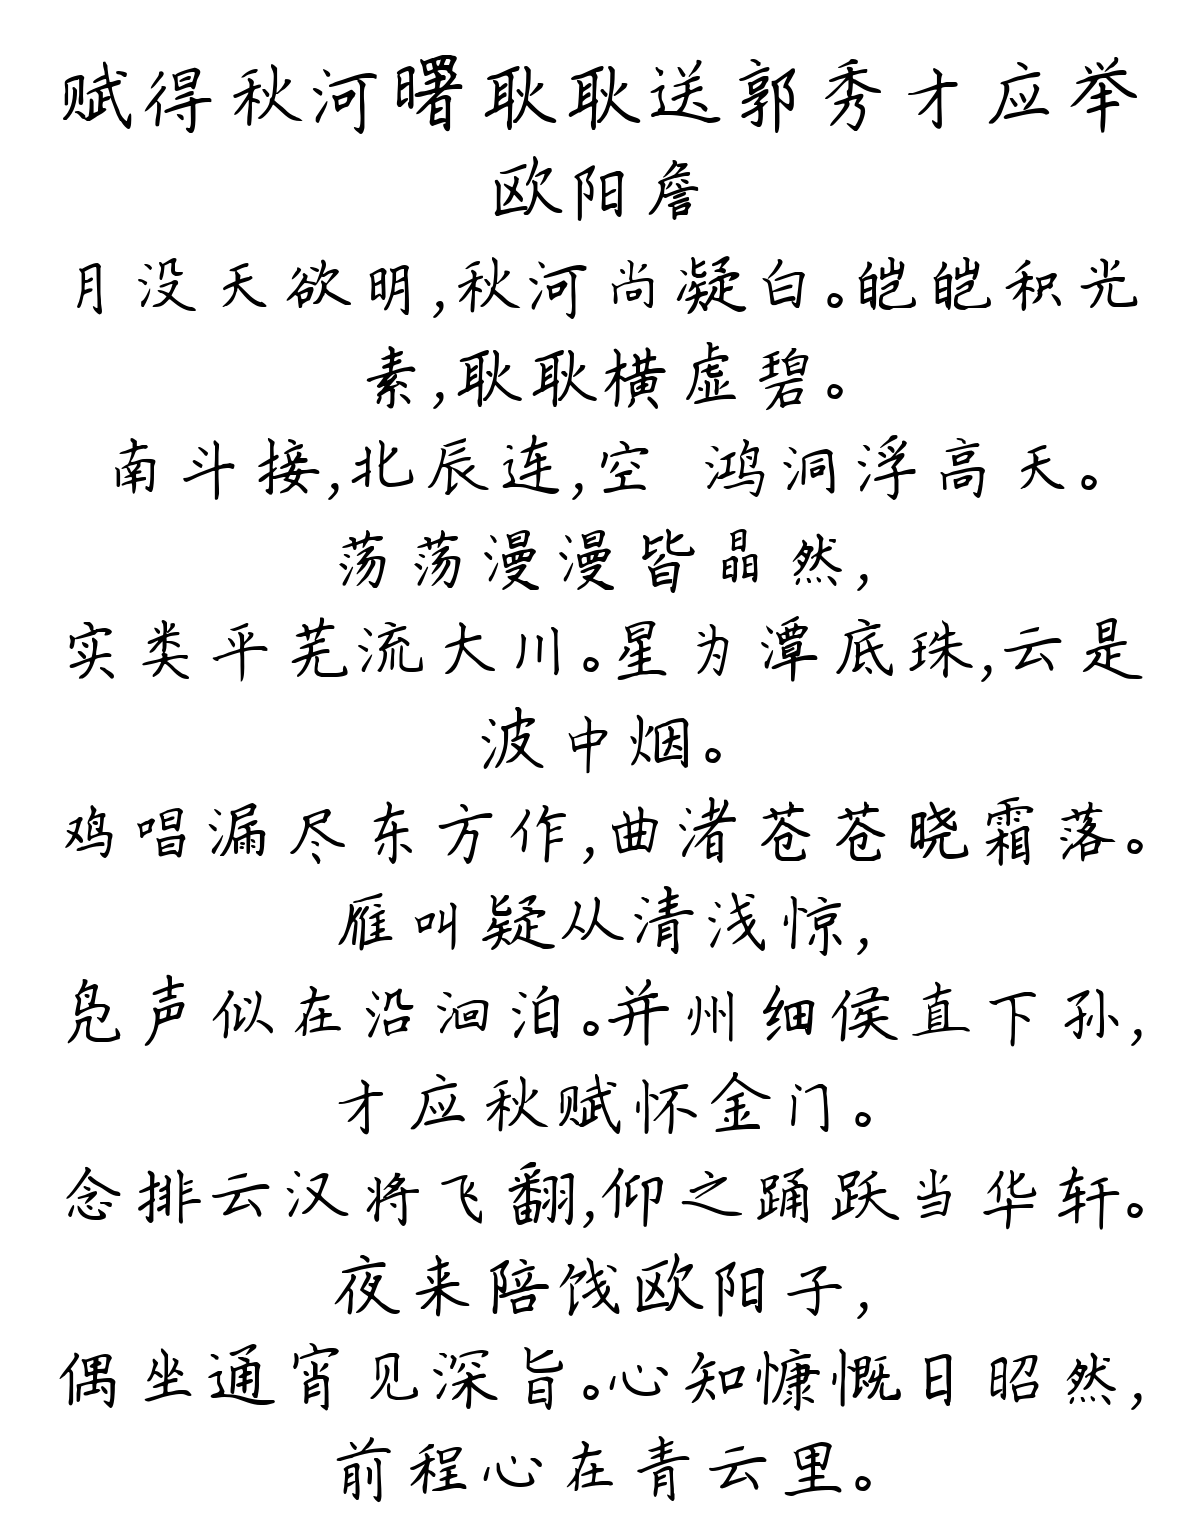 赋得秋河曙耿耿送郭秀才应举
欧阳詹
月没天欲明,秋河尚凝白。皑皑积光
素,耿耿横虚碧。
南斗接,北辰连,空 鸿洞浮高天。
荡荡漫漫皆晶然,
实类平芜流大川。星为潭底珠,云是
波中烟。
鸡唱漏尽东方作,曲渚苍苍晓霜落。
雁叫疑从清浅惊,
凫声似在沿洄泊。并州细侯直下孙,
才应秋赋怀金门。
念排云汉将飞翻,仰之踊跃当华轩。
夜来陪饯欧阳子,
偶坐通宵见深旨。心知慷慨日昭然,
前程心在青云里。